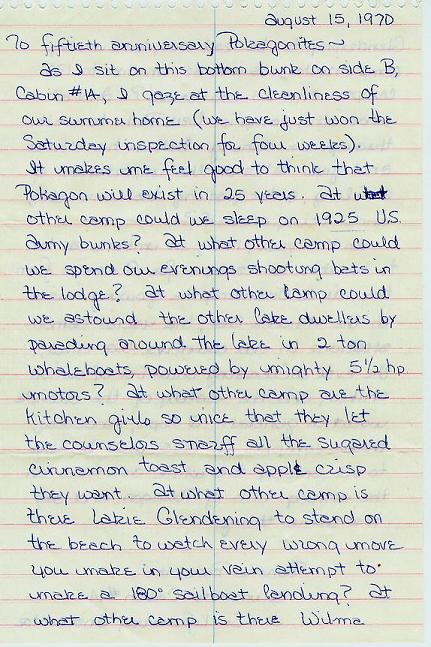 August 15, 1970
To fiftieth anniversary Pokagonites ~
As I sit on this bottom bunk on side B,
Cabin #1A, I gaze at the cleanliness of
our summer home (we have just won the
Saturday inspection for four weeks).
It makes me feel good to think that
Pokagon will exist in 25 years. At what
other camp could we sleep on 1925 U.S.
Army bunks? At what other camp could
we spend our evenings shooting bats in
the lodge? At what other camp could
we astound the other lake dwellers by
parading around the lake in 2 ton
whaleboats, powered by mighty 5 1/2 hp
motors? At what other camp are the
kitchen girls so nice that they let
the counselors snarff all the sugared
cinnamon toast and apple crisp
they want. At what other camp is
there Lakie Glendening to stand on
the beach to watch every wrong move
you make in your vain attempt to
make a 180° sailboat landing? At
what other camp is there Wilma